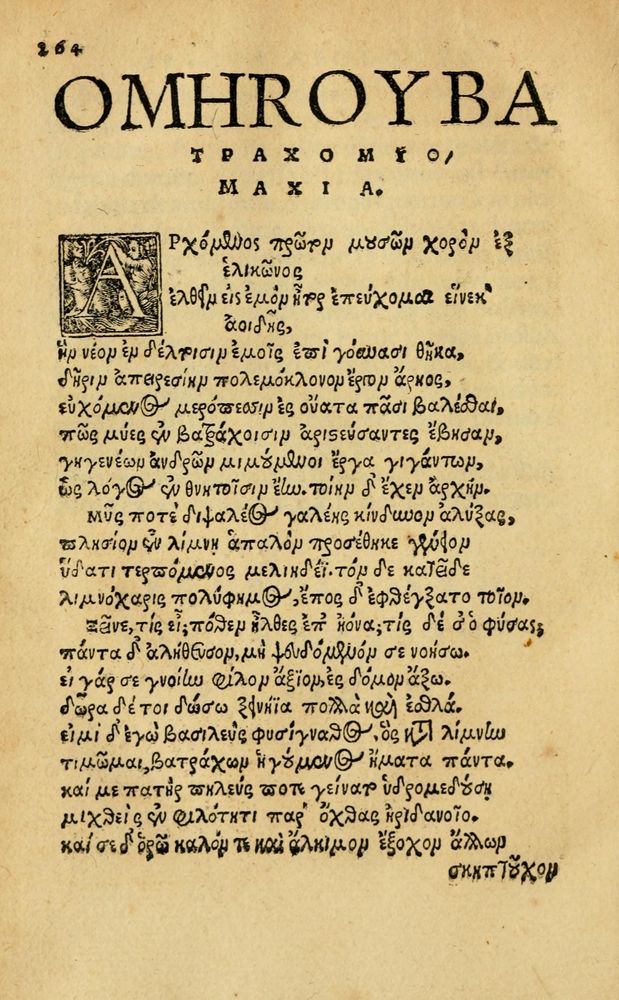 264
ΟΜΗROΥ ΒΑ
ΤΡΑΧΟΜΥΟ/
ΜΑΧΙΑ.
ΑΡχόμενος πρῶτον μουσῶν χορὸν ἐξ
ἑλικῶνος
ἐλθεῖν εἰς ἐμὸν ἦτορ ἐπεύχομαι εἵνεκ'
ἀοιδῆς,
ἣν νέον ἐν δέλτοισιν ἐμοῖς ἐπὶ γούνασι θῆκα,
δῆριν ἀπειρεσίην πολεμόκλονον ἔργον ἄρηος,
εὐχόμενος μερόπεσσιν ἐς οὔατα πᾶσι βαλέσθαι,
πῶς μύες ἐν βατράχοισιν ἀριστεύσαντες ἔβησαν,
γηγενέων ἀνδρῶν μιμούμενοι ἔργα γιγάντων,
ὡς λόγος ἐν θνητοῖσιν ἔην. τοίην δ' ἔχεν ἀρχήν.
Μῦς ποτὲ διψαλέος γαλέης κίνδυνον ἀλύξας,
πλησίον ἐν λίμνῃ ἁπαλὸν προσέθηκε γένειον
ὕδατι τερπόμενος μελιηδέϊ. τὸν δὲ κατεῖδε
λιμνόχαρις πολύφημος, ἔπος δ' ἐφθέγξατο τοῖον.
Ξεῖνε, τίς εἶ; πόθεν ἦλθες ἐπ' ἠϊόνα; τίς δέ σ' ὁ φύσας;
πάντα δ' ἀλήθευσον, μὴ ψευδόμενόν σε νοήσω.
εἰ γάρ σε γνοίην φίλον ἄξιον, ἐς δόμον ἄξω.
δῶρα δέ τοι δώσω ξεινήϊα πολλὰ καὶ ἐσθλά.
εἰμὶ δ' ἐγὼ βασιλεὺς φυσίγναθος, ὃς κατὰ λίμνην
τιμῶμαι, βατράχων ἡγούμενος ἤματα πάντα.
καί με πατὴρ πηλεὺς ποτὲ γείνατο ὑδρομεδούσῃ
μιχθεὶς ἐν φιλότητι παρ' ὄχθας ἠριδανοῖο.
καί σε δ' ὁρῶ καλόν τε καὶ ἄλκιμον ἔξοχον ἄλλων
σκηπτοῦχον